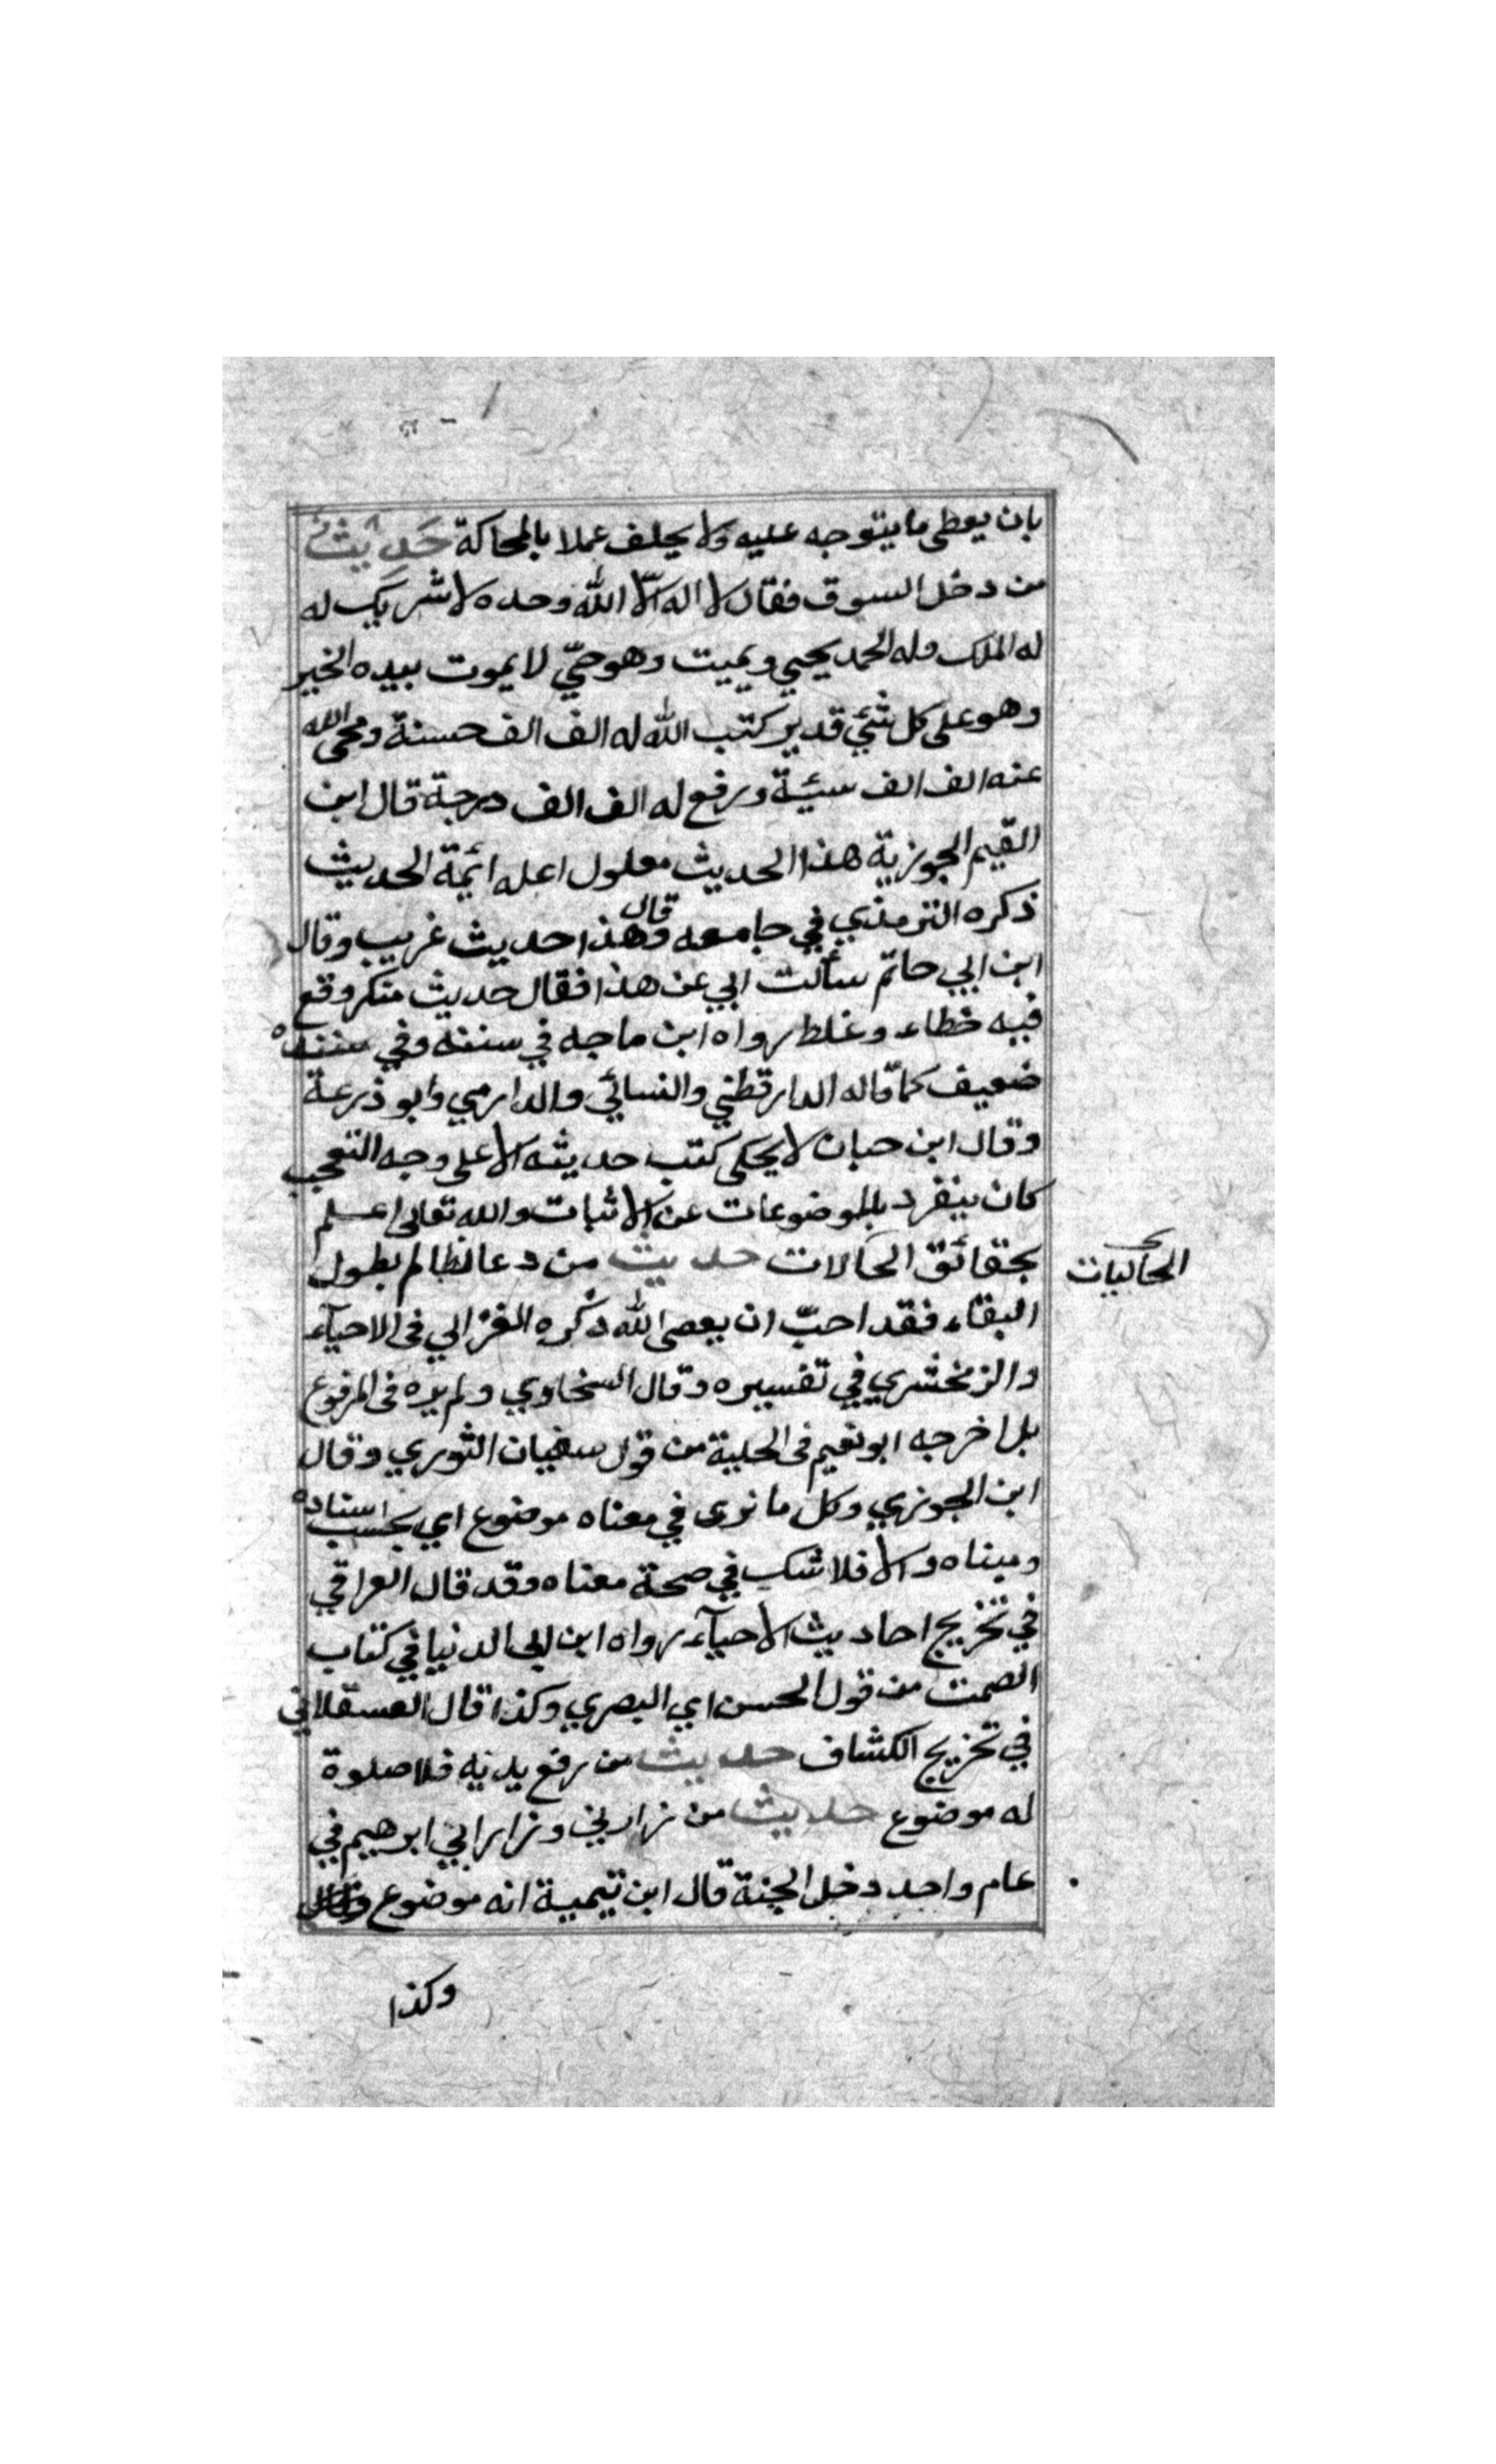 بان يعطى ما يتوجه عليه ولا يحلف عملا بالمحاكة حديث
من دخل السوق فقال لا اله الا الله وحده لا شريك له
له الملك وله الحمد يحيي ويميت وهو حيّ لا يموت بيده الخير
وهو على كل شئ قدير كتب الله له الف الف حسنة ومحى الله
عنه الف الف سيئة ورفع له الف الف درجة قال ابن
القيم الجوزية هذا الحديث معلول اعله ائمة الحديث
ذكره الترمذي في جامعه وقال هذا حديث غريب وقال
ابن ابي حاتم سألت ابي عن هذا فقال حديث منكر وقع
فيه خطاء وغلط رواه ابن ماجه في سننه وفي سنده
ضعيف كما قاله الدارقطني والنسائي والدارمي وابو ذرعة
وقال ابن حبان لا يحكى كتب حديثه الا على وجه التعجب
كان ينفرد بالموضوعات عن الاثبات والله تعالى اعلم
بحقائق الحالات حديث من دعا لظالم بطول
الحاكيات
البقاء فقد احبّ ان يعصى الله ذكره الغزالي في الاحيآء
والزمخشري في تفسيره وقال السخاوي ولم يره في المرفوع
بل اخرجه ابو نعيم في الحلية من قول سفيان الثوري وقال
ابن الجوزي وكل ما نرى في معناه موضوع اي بحسب اسناده
ومبناه والا فلا شك في صحة معناه وقد قال العراقي
في تخريج احاديث الاحيآء رواه ابن ابي الدنيا في كتاب
الصمت من قول الحسن اي البصري وكذا قال العسقلاني
في تخريج الكشاف حديث من رفع يديه فلا صلوة
له موضوع حديث من زارني وزار ابي ابرهيم في
عام واحد دخل الجنة قال ابن تيمية انه موضوع
وكذا